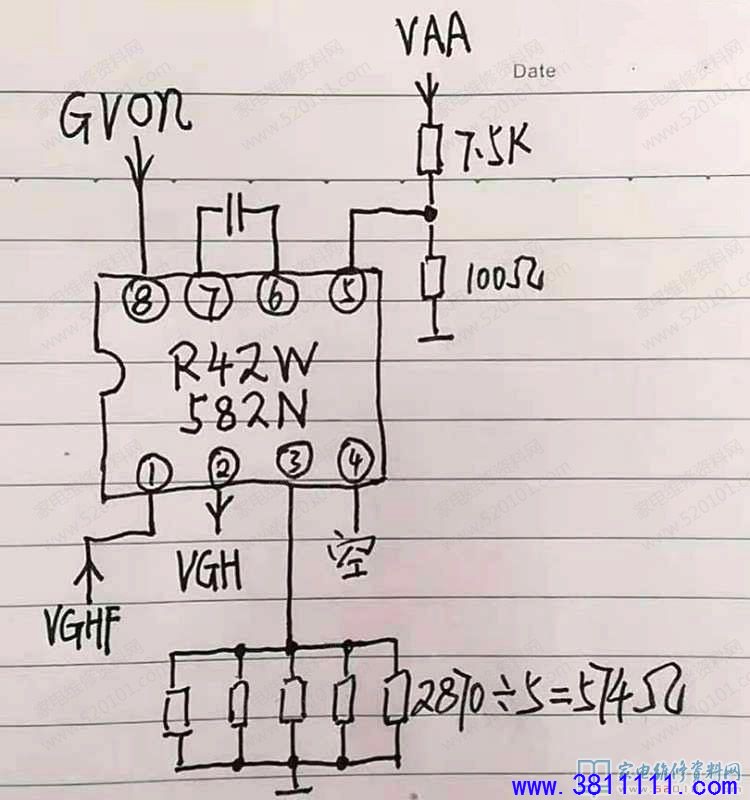 VAA
Date
GVON
7.5K
100Ω
⑧ ⑦ ⑥ ⑤
R42W
582N
① ② ③ ④
VGH
空
VGHF
2870÷5=574Ω
家电维修资料网
www.520101.com
www.3811111.com